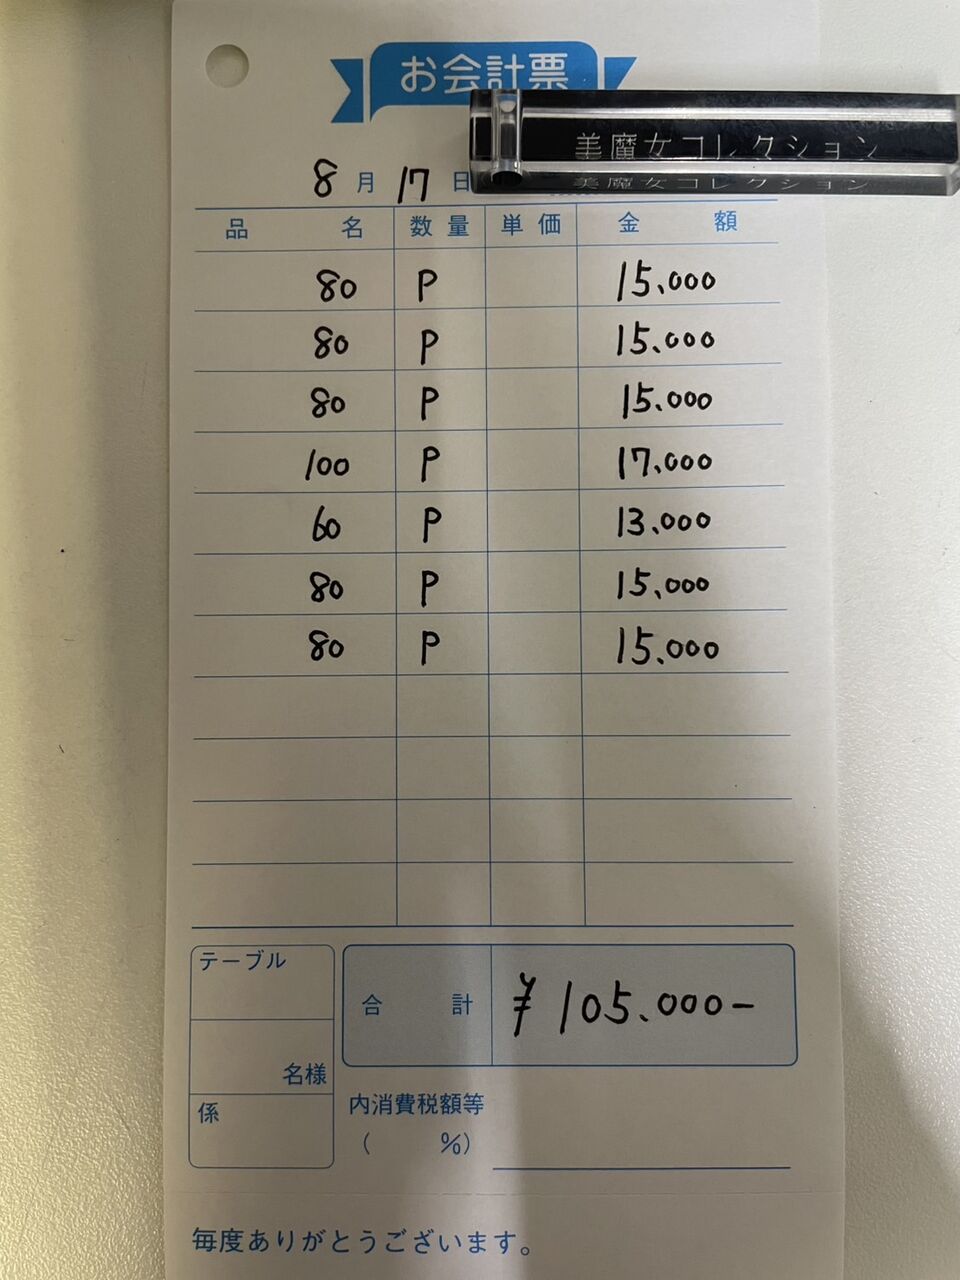 お会計票
美魔女コレクション
美魔女コレクション
8月17日
品名 数量 単価 金額
80 P 15.000
80 P 15.000
80 P 15.000
100 P 17.000
60 P 13.000
80 P 15.000
80 P 15.000
テーブル
合計 ¥105.000-
名様
係
内消費税額等
( %)
毎度ありがとうございます。